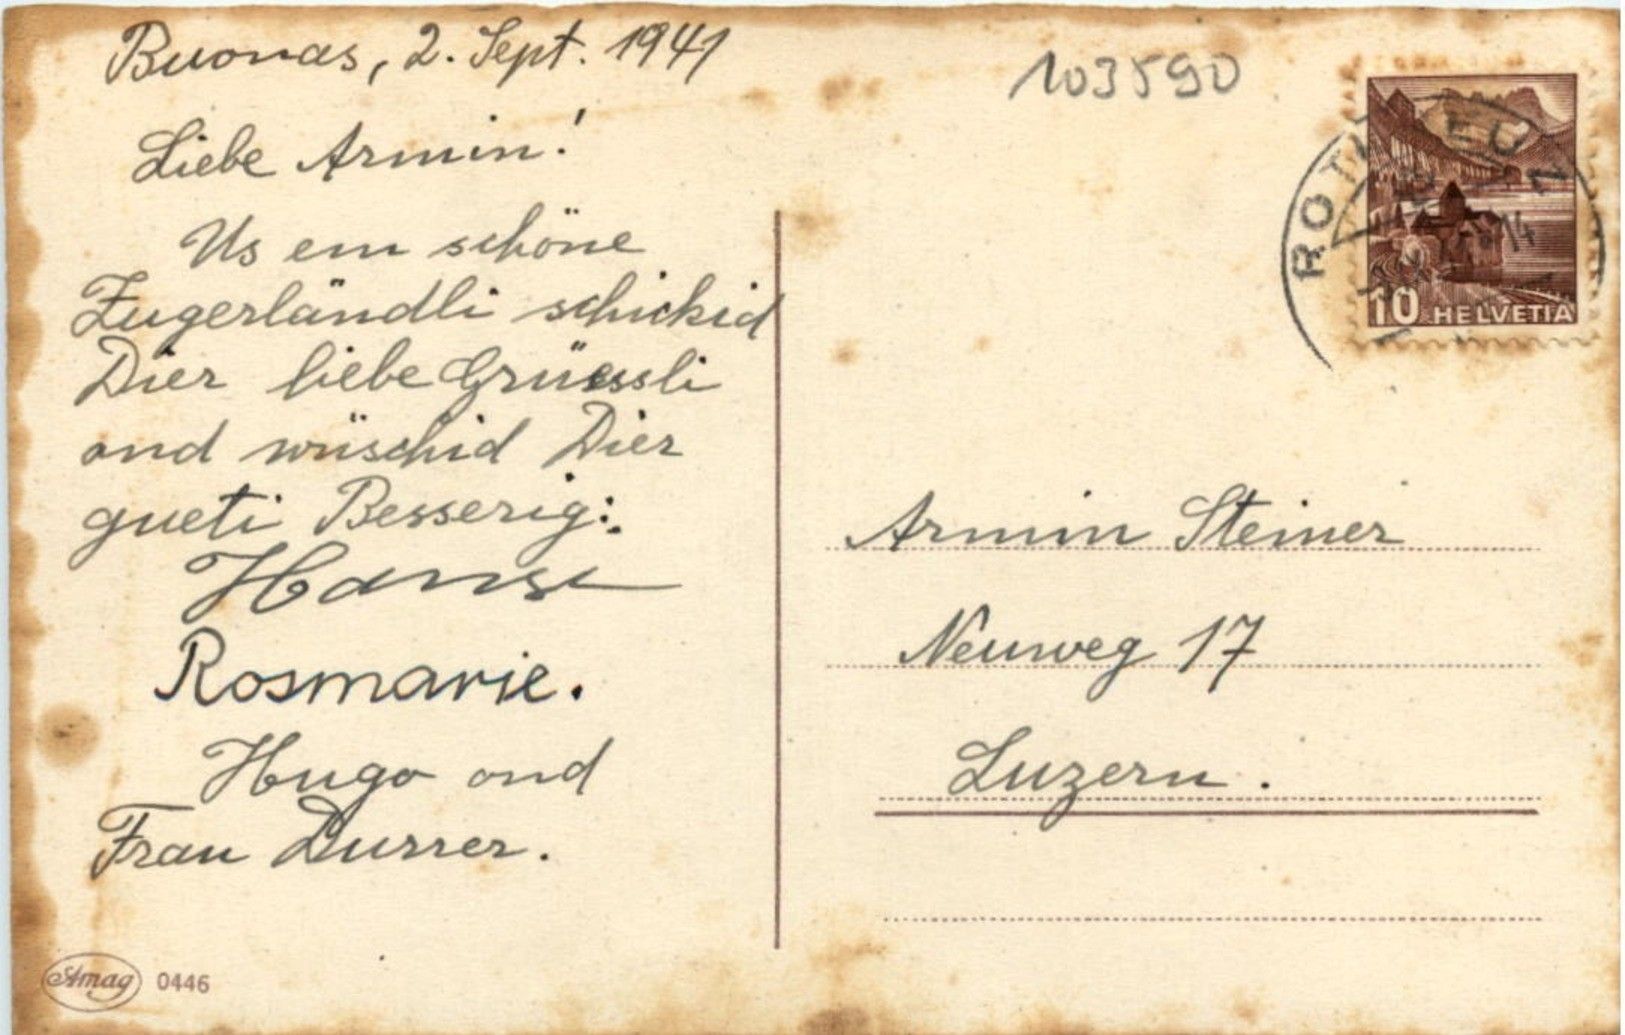 Buonas, 2. Sept. 1941
Liebe Armin!
Us em schöne
Zugerländli schickid
Dier liebe Grüessli
ond wüschid Dier
gueti Besserig:
Hansi
Rosmarie.
Hugo ond
Frau Durrer.
Amag 0446
103590
10 HELVETIA
Armin Steiner
Neuweg 17
Luzern.